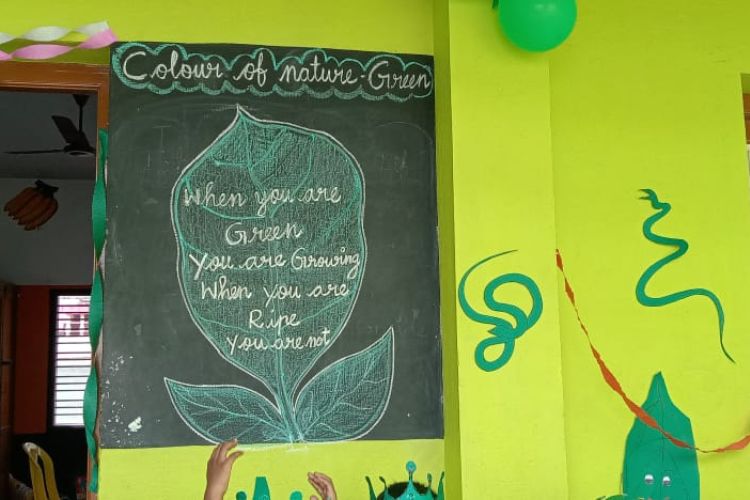 Colour of nature-Green
When you are
Green
You are Growing
When you are
Ripe
You are not